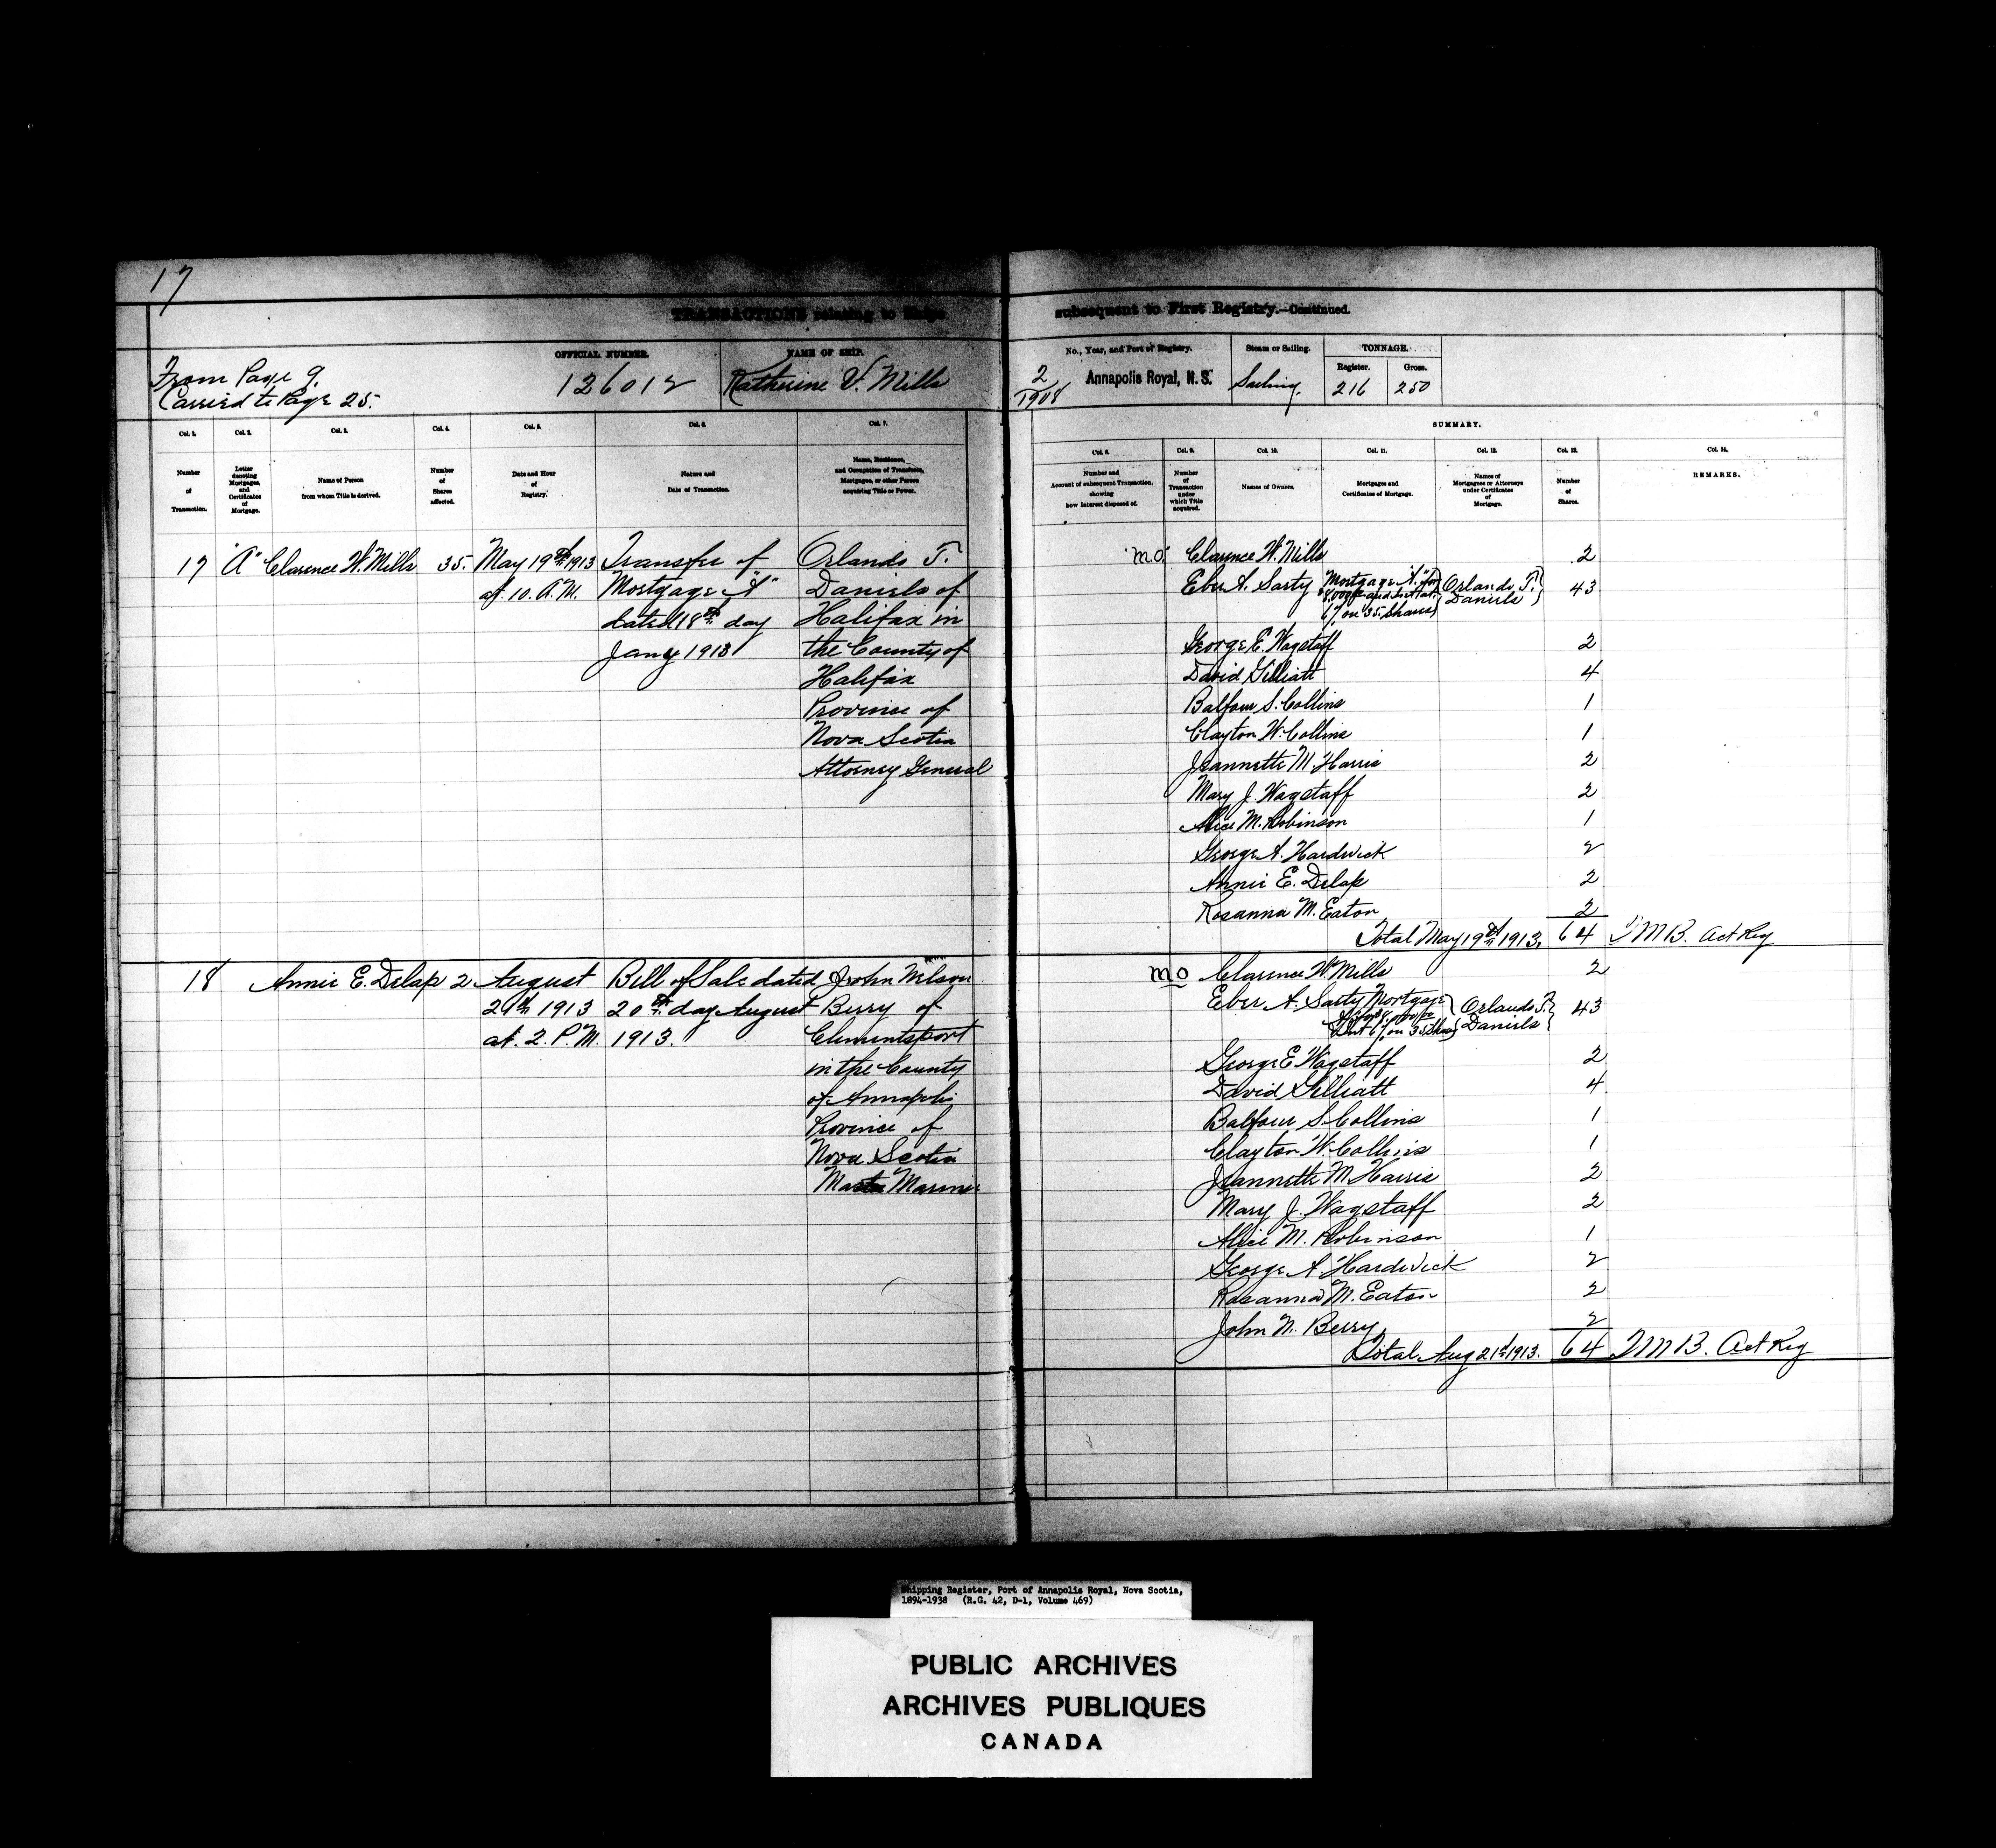 17
TRANSACTIONS relating to Ships
subsequent to First Registry.—Continued.
From Page 9.
Carried to Page 25.
OFFICIAL NUMBER.
126012
NAME OF SHIP.
Katherine V. Mills
No., Year, and Port of Registry.
2/1908 Annapolis Royal, N. S.
Steam or Sailing.
Sailing.
TONNAGE.
Register. Gross.
216 250
SUMMARY.
Col. 1. Col. 2. Col. 3. Col. 4. Col. 5. Col. 6. Col. 7.
Number of Transaction.
Letter denoting Mortgages, and Certificates of Mortgage.
Name of Person from whom Title is derived.
Number of Shares affected.
Date and Hour of Registry.
Nature and Date of Transaction.
Name, Residence, and Occupation of Transferee, Mortgagee, or other Person acquiring Title or Power.
Col. 8. Col. 9. Col. 10. Col. 11. Col. 12. Col. 13. Col. 14.
Number and Account of subsequent Transaction, showing how Interest disposed of.
Number of Transaction under which Title acquired.
Names of Owners.
Mortgages and Certificates of Mortgage.
Names of Mortgagees or Attorneys under Certificates of Mortgage.
Number of Shares.
REMARKS.
17 "A" Clarence W. Mills 35. May 19th 1913 Transfer of Orlando T.
at 10. A.M. Mortgage "A" Daniels of
dated 18th day Halifax in
Jany 1913 the County of
Halifax
Province of
Nova Scotia
Attorney General
M.O. Clarence W. Mills 2
Eber A. Sarty Mortgage "A" for Orlando T. Daniels 43
6% on 35 Shares
George E. Wagstaff 2
David Gilliatt 4
Balfour S. Collins 1
Clayton W. Collins 1
Jeannette M. Harris 2
Mary J. Wagstaff 2
Alice M. Robinson 1
George A. Hardwick 2
Annie E. Delap 2
Rosanna M. Eaton 2
Total May 19th 1913. 64 Act Reg
18 Annie E. Delap 2 August Bill of Sale dated John Nelson
1913 20th day August Berry of
at. 2. P.M. 1913. Clementsport
in the County
of Annapolis
Province of
Nova Scotia
Master Mariner
MO Clarence W. Mills 2
Eber A. Sarty Mortgage Orlando T. Daniels 43
6% on 35 Shares
George E. Wagstaff 2
David Gilliatt 4
Balfour S. Collins 1
Clayton W. Collins 1
Jeannette M. Harris 2
Mary J. Wagstaff 2
Alice M. Robinson 1
George A. Hardwick 2
Rosanna M. Eaton 2
John N. Berry 2
Total Aug 21st 1913. 64 Act Reg
Shipping Register, Port of Annapolis Royal, Nova Scotia,
1894-1938 (R.G. 42, D-1, Volume 469)
PUBLIC ARCHIVES
ARCHIVES PUBLIQUES
CANADA